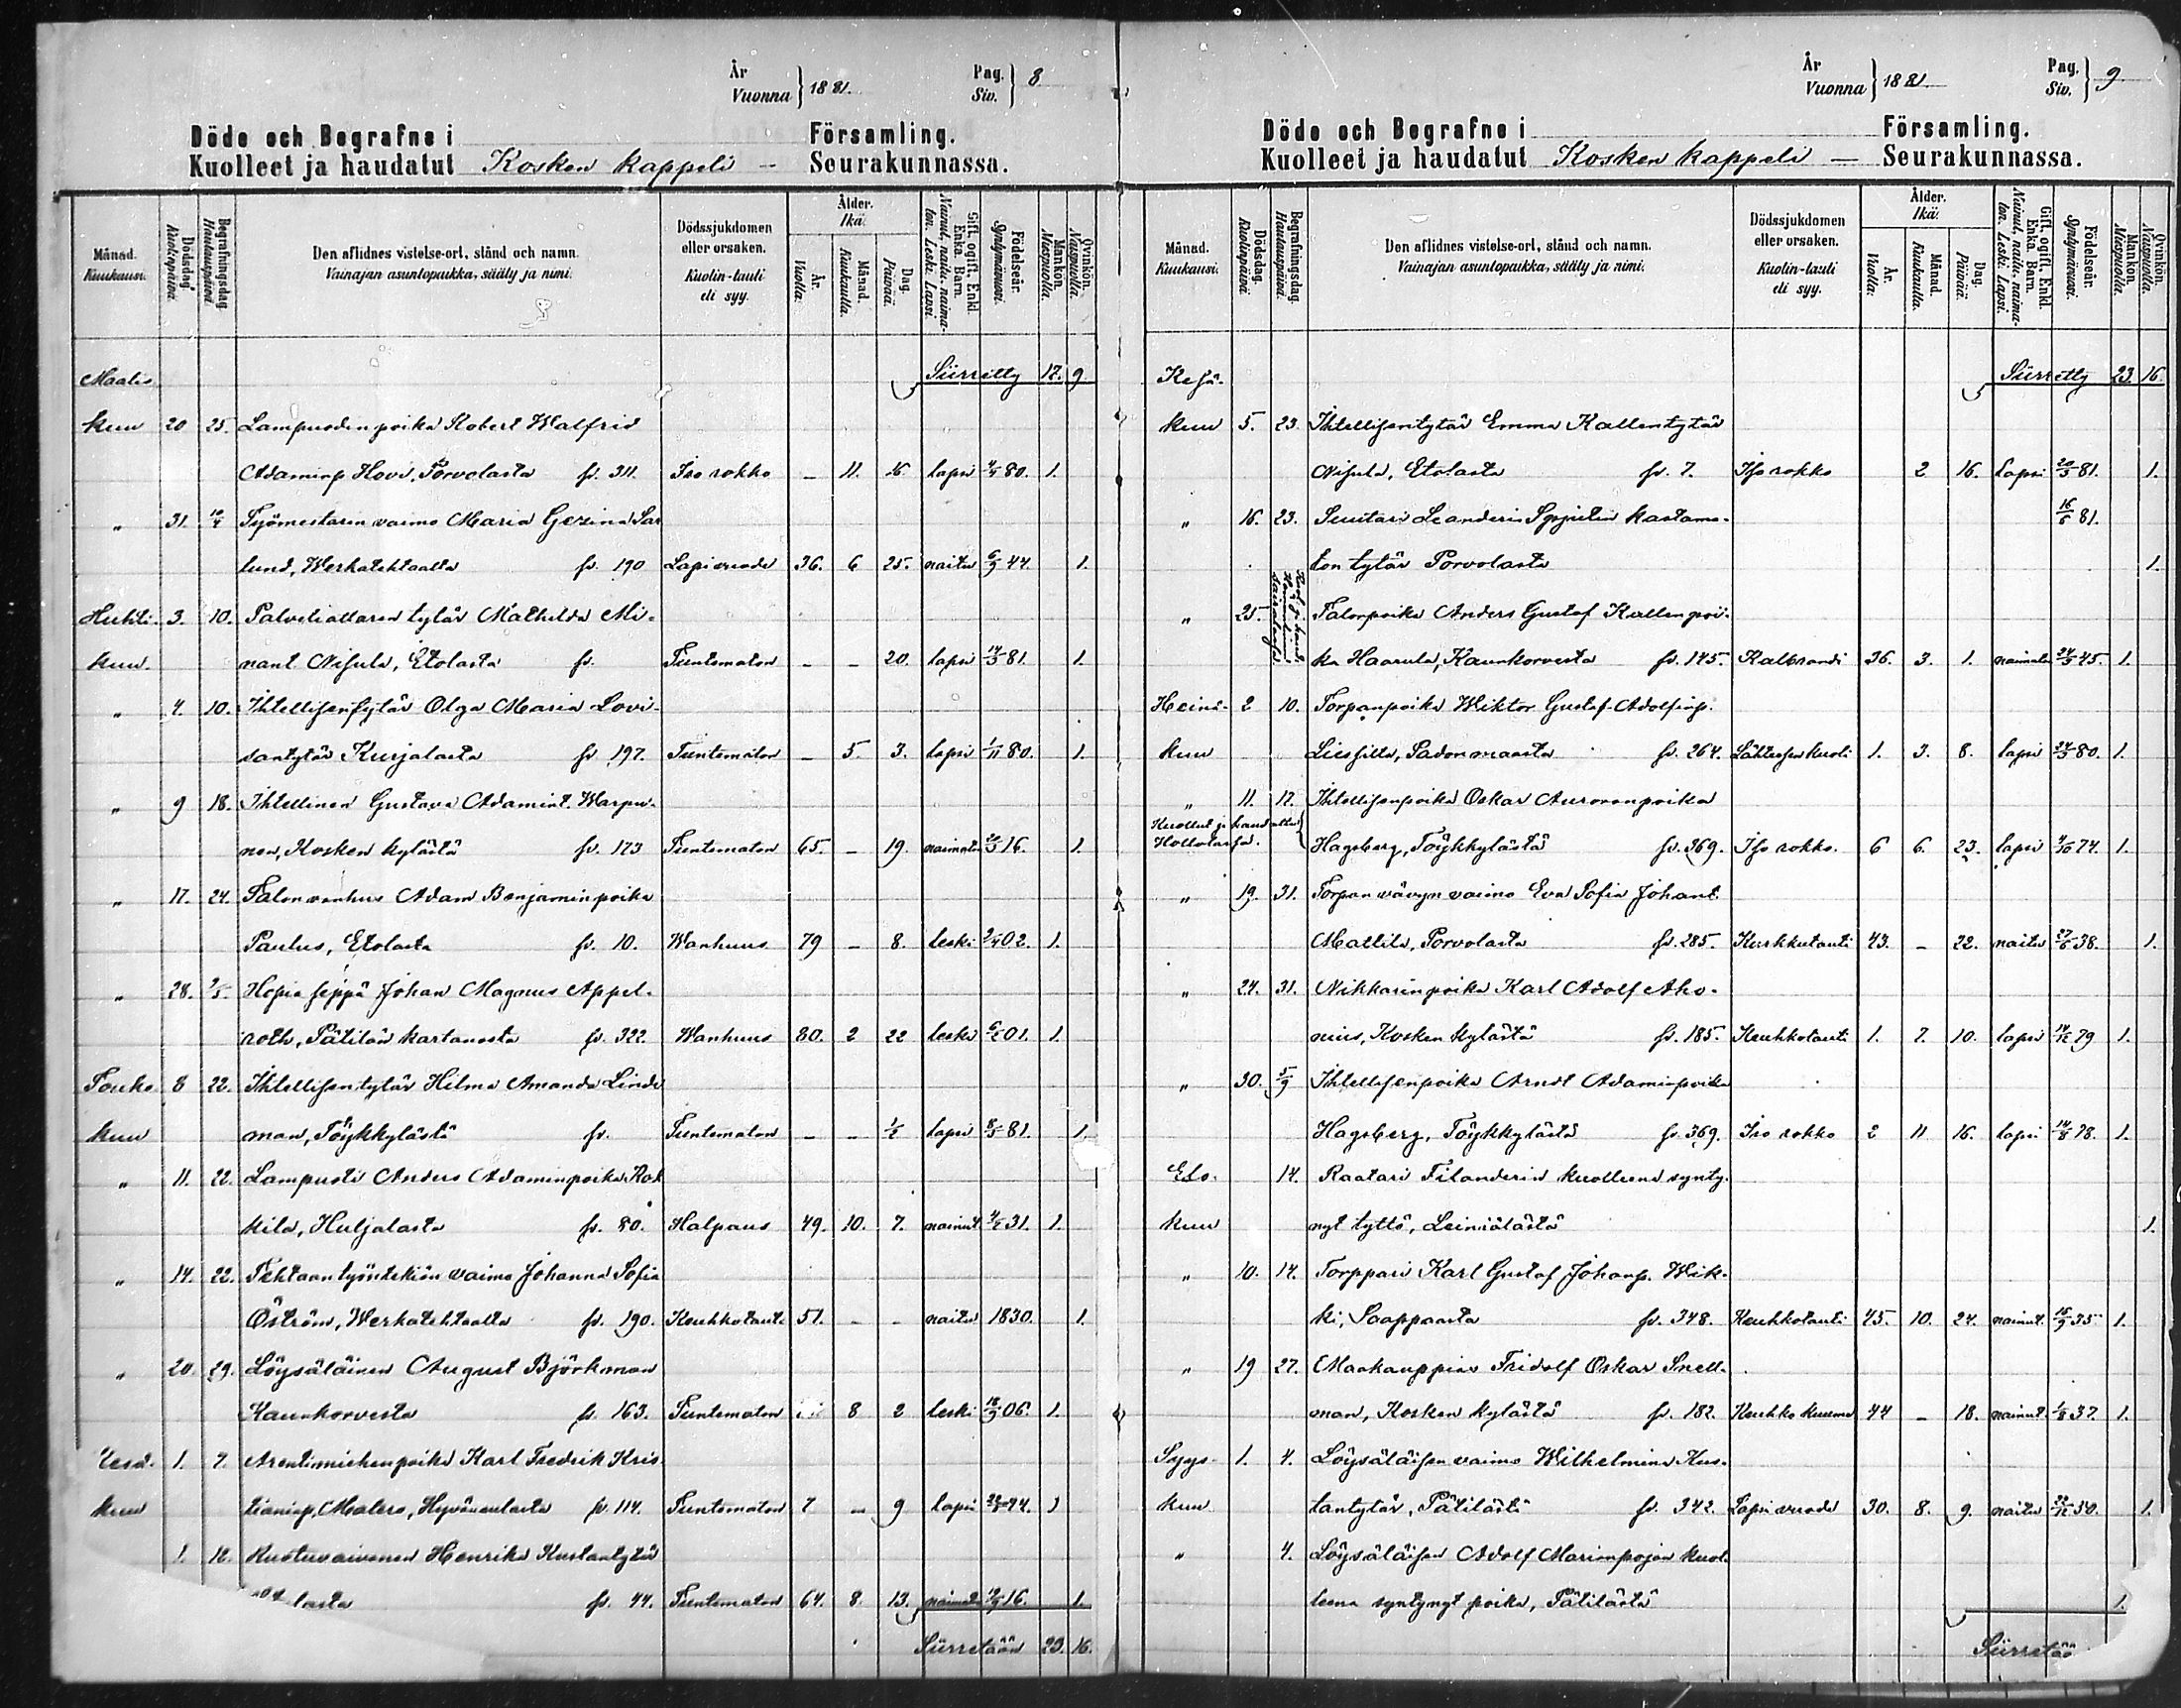 År
Vuonna } 1881.
Pag.
Siv. } 8
Döde och Begrafne i Församling.
Kuolleet ja haudatut Kosken kappeli – Seurakunnassa.
Månad. Kuukausi. Dödsdag. Kuolinpäivä. Begrafningsdag. Hautauspäivä. Den aflidnes vistelse-ort, stånd och namn. Vainajan asuntopaikka, sääty ja nimi. Dödssjukdomen eller orsaken. Kuolin-tauti eli syy. Ålder. Ikä. År. Vuotta. Månad. Kuukautta. Dag. Päivää. Gift, ogift, Enkl. Enka. Barn. Nainut, naitu, naimaton. Leski. Lapsi. Födelseår. Syntymävuosi. Mankön. Miespuolia. Qvinkön. Naispuolia.
Maalis Siirretty 17. 9.
kuu 20 25. Lampuodin poika Robert Walfrid
Adaminp. Hovi, Porvolasta fv. 311. Iso rokko – 11. 16. lapsi 4/4 80. 1.
" 31. 10/4 Työmestarin vaimo Maria Gezina Sar
lund, Werkatehtaalta fv. 190 Lapsivuode 36. 6 25. naitu 6/9 44. 1.
Huhti- 3. 10. Palveliattaren tytär Mathilda Mi-
kuu. nant Nisula, Etolasta fv. Tuntematon – – 20. lapsi 14/3 81. 1.
" 4. 10. Ihtellisen tytär Olga Maria Lovi-
santytär Kurjalasta fv 197. Tuntematon – 5. 3. lapsi 1/11 80. 1.
" 9 18. Ihtellinen Gustava Adamint. Warpu-
nen, Kosken kylästä fv. 173 Tuntematon 65. – 19. naimatn 20/3 16. 1.
" 17. 24. Talon vanhus Adam Benjamin poika
Paulus, Etolasta fv. 10. Wanhuus 79 – 8. leski 9/4 02. 1.
" 28. 9/5. Hopia seppä Johan Magnus Appel-
roth, Pätilän kartanosta fv. 322. Wanhuus 80. 2 22 leski 6/2 01. 1.
Touko 8 22. Ihtellisen tytär Hilma Amanda Linde
kuu man, Töykkylästä fv. Tuntematon – – 1/2 lapsi 8/5 81. 1.
" 11. 22. Lampuoti Anders Adaminpoika Rok
kila, Huljalasta fv. 80. Halpaus 49. 10. 7. nainut 4/7 31. 1.
" 14. 22. Tehtaan työntekiän vaimo Johanna Sofia
Öström, Werkatehtaalta fv. 190. Keuhkotauti 51. – – naitu 1830. 1.
" 20. 29. Löysäläinen August Björkman
Kaunkorvesta fv. 163. Tuntematon 8 2 leski 18/9 06. 1.
Kesä- 1. 7. Arentimiehenpoika Karl Fredrik Kris
kuu tianinp. Malers, Hyvänäulasta fv. 114. Tuntematon 7 – 9 lapsi 74. 1
1. 12. Ruotuvaivanen Henrika Kustantytär
lasta fv. 44. Tuntematon 64. 8. 13. naimatn 16. 1.
Siirretään 23. 16.
År
Vuonna } 1881.
Pag.
Siv. } 9
Döde och Begrafne i Församling.
Kuolleet ja haudatut Kosken kappeli – Seurakunnassa.
Månad. Kuukausi. Dödsdag. Kuolinpäivä. Begrafningsdag. Hautauspäivä. Den aflidnes vistelse-ort, stånd och namn. Vainajan asuntopaikka, sääty ja nimi. Dödssjukdomen eller orsaken. Kuolin-tauti eli syy. Ålder. Ikä. År. Vuotta. Månad. Kuukautta. Dag. Päivää. Gift, ogift, Enkl. Enka. Barn. Nainut, naitu, naimaton. Leski. Lapsi. Födelseår. Syntymävuosi. Mankön. Miespuolia. Qvinkön. Naispuolia.
Kesä- Siirretty 23. 16.
kuu 5. 23. Ihtellisentytär Emma Kallentytär
Nisula, Etolasta fv. 7. Iso rokko 2 16. Lapsi 20/3 81. 1.
" 16. 23. Suutari Leanderin kastama- 16/6 81.
ton tytär Porvolasta 1.
" 25. Talonpoika Anders Gustaf Kallenpoi-
ka Haarula, Kaunkorvesta fv. 145. Kalbrandi 36. 3. 1. naimatn 24/3 45. 1.
Heinä- 2 10. Torpanpoika Wiktor Gustaf Adolfinp.
kuu Liesfilta, Sadonmaasta fv. 264. Lähtösen kuoli 1. 3. 8. lapsi 24/3 80. 1.
" 11. 17. Ihtellisenpoika Oskar Auroranpoika
Kuollut ja haudattu
Hollolassa. } Hagsberg, Töykkylästä fv. 369. Iso rokko. 6 6. 23. lapsi 74. 1.
" 19. 31. Torpan vävyn vaimo Eva Sofia Johant.
Mattila, Porvolasta fv. 285. Kurkkutauti 43. – 22. naitu 27/6 38. 1.
" 24. 31. Nikkarinpoika Karl Adolf Aho-
nius, Kosken kylästä fv. 185. Keuhkotauti 1. 7. 10. lapsi 14/12 79 1.
" 30. 5/9 Ihtellisenpoika Arndt Adaminpoika
Hagsberg, Töykkylästä fv. 369. Iso rokko 2 11 16. lapsi 14/8 78. 1.
Elo- 14. Raatari Filanderin kuolleena synty-
kuu nyt tyttö, Leiniälästä 1.
" 10. 14. Torppari Karl Gustaf Johanp. Wik-
ki, Saappaasta fv. 348. Keuhkotauti 45. 10. 24. nainut. 16/9 35 1.
" 19 27. Maakauppias Fridolf Oskar Snell-
man, Kosken kylästä fv. 182. Keuhko kuume 44 – 18. nainut. 1/8 37. 1.
Syys- 1. 4. Löysäläisen vaimo Wilhelmina Kus-
kuu tantytär, Pätilästä fv. 342. Lapsivuode 30. 8. 9. naitu 50. 1.
" 4. Löysäläisen Adolf Marianpojan kuol-
leena syntynyt poika, Pätilästä 1.
Siirretää